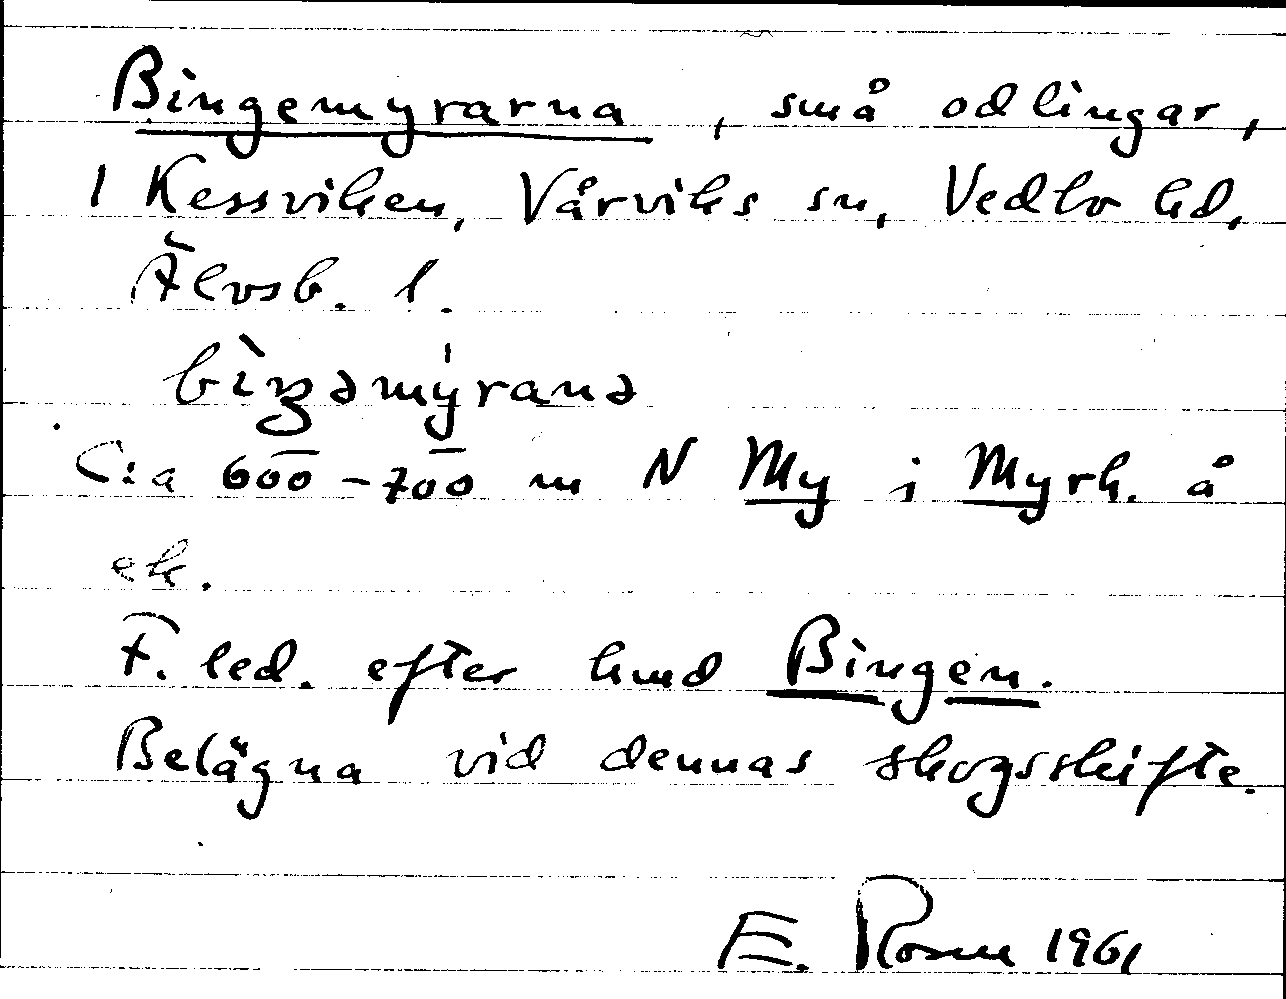 Bingemyrarna, små odlingar,
1 Kessviken, Vårviks sn, Vedbo hd,
Älvsb. l.
bìŋəmy̍ranə
C:a 600-700 m N My i Myrh. å
ek.
F. led. efter hmd Bingen.
Belägna vid dennas skogsskifte.
E. Rosen 1961